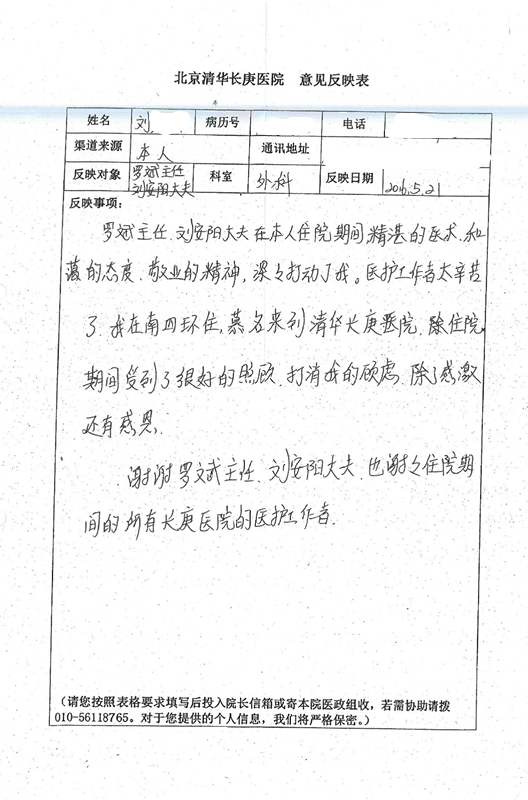 北京清华长庚医院 意见反映表
姓名 刘 病历号 电话
渠道来源 本人 通讯地址
反映对象 罗斌主任 刘安阳大夫 科室 外科 反映日期 2016.5.21
反映事项:
罗斌主任、刘安阳大夫在本人住院期间精湛的医术、和
蔼的态度、敬业的精神,深々打动了我。医护工作者太辛苦
了、我在南四环住,慕名来到清华长庚医院、除住院
期间受到了很好的照顾、打消我的顾虑、除了感激
还有感恩.
谢谢罗斌主任、刘安阳大夫、也谢々住院期
间的所有长庚医院的医护工作者.
(请您按照表格要求填写后投入院长信箱或寄本院医政组收,若需协助请拨
010-56118765。对于您提供的个人信息,我们将严格保密。)